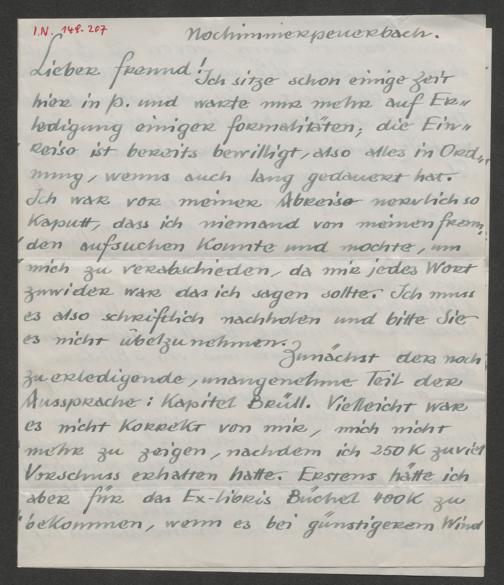 I.N. 148.207
Nochimmerpeuerbach.
Lieber freund! Ich sitze schon einige Zeit
hier in p. und warte nur mehr auf Er„
ledigung einiger formalitäten; die Ein„
reise ist bereits bewilligt, also alles in Ord„
nung, wenns auch lang gedauert hat.
Ich war vor meiner Abreise nervlich so
Kaputt, dass ich niemand von meinen freun„
den aufsuchen Konnte und mochte, um
mich zu verabschieden, da mir jedes Wort
zuwider war das ich sagen sollte. Ich muss
es also schriftlich nachholen und bitte Sie
es nicht übelzunehmen.
Zunächst der noch
zu erledigende, unangenehme Teil der
Aussprache: Kapitel Brüll. Vielleicht war
es nicht Korrekt von mir, mich nicht
mehr zu zeigen, nachdem ich 250 K zuviel
Vorschuss erhalten hatte. Erstens hätte ich
aber für das Ex-libris Büchel 400K zu
bekommen, wenn es bei günstigerem Wind